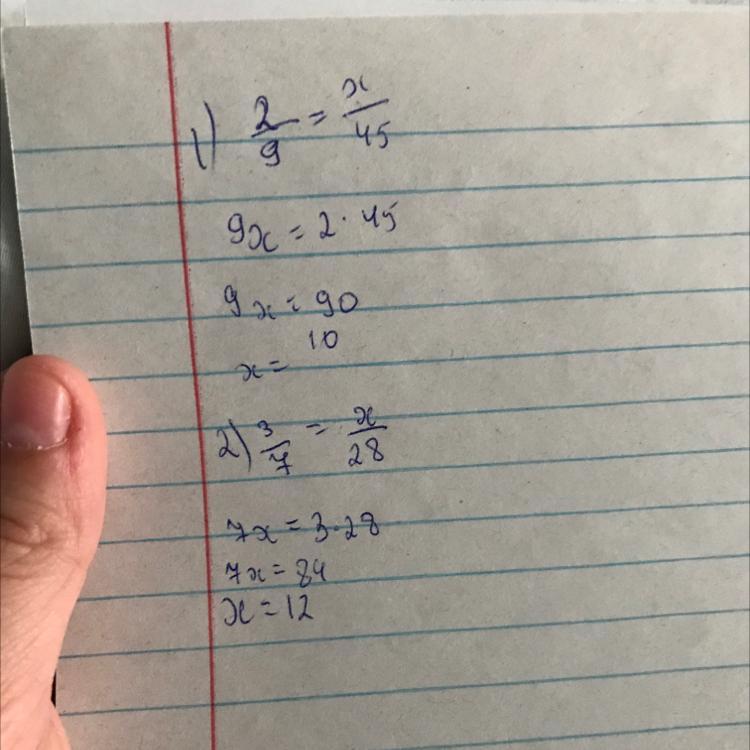 1) 2/9 = x/45
9x = 2 · 45
9x = 90
x = 10
2) 3/7 = x/28
7x = 3 · 28
7x = 84
x = 12